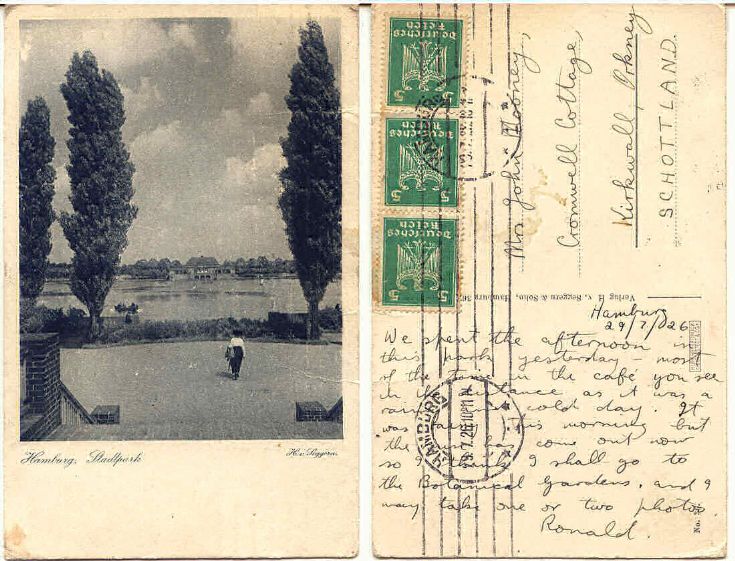 Hamburg, Stadtpark
H. v. Seggern.
Deutsches
Reich
5 5
Deutsches
Reich
5 5
Deutsches
Reich
5 5
HAMBURG
Mrs. John Mooney,
Cromwell Cottage,
Kirkwall, Orkney
SCHOTTLAND.
Verlag H. v. Seggern & Sohn, Hamburg
Hamburg
29/7/26
We spent the afternoon in
this park yesterday – most
of the time in the café you see
in the distance as it was a
rainy and cold day. It
was this morning but
the sun has come out now
so I think I shall go to
the Botanical Gardens, and I
may take one or two photos.
Ronald.
HAMBURG
No.